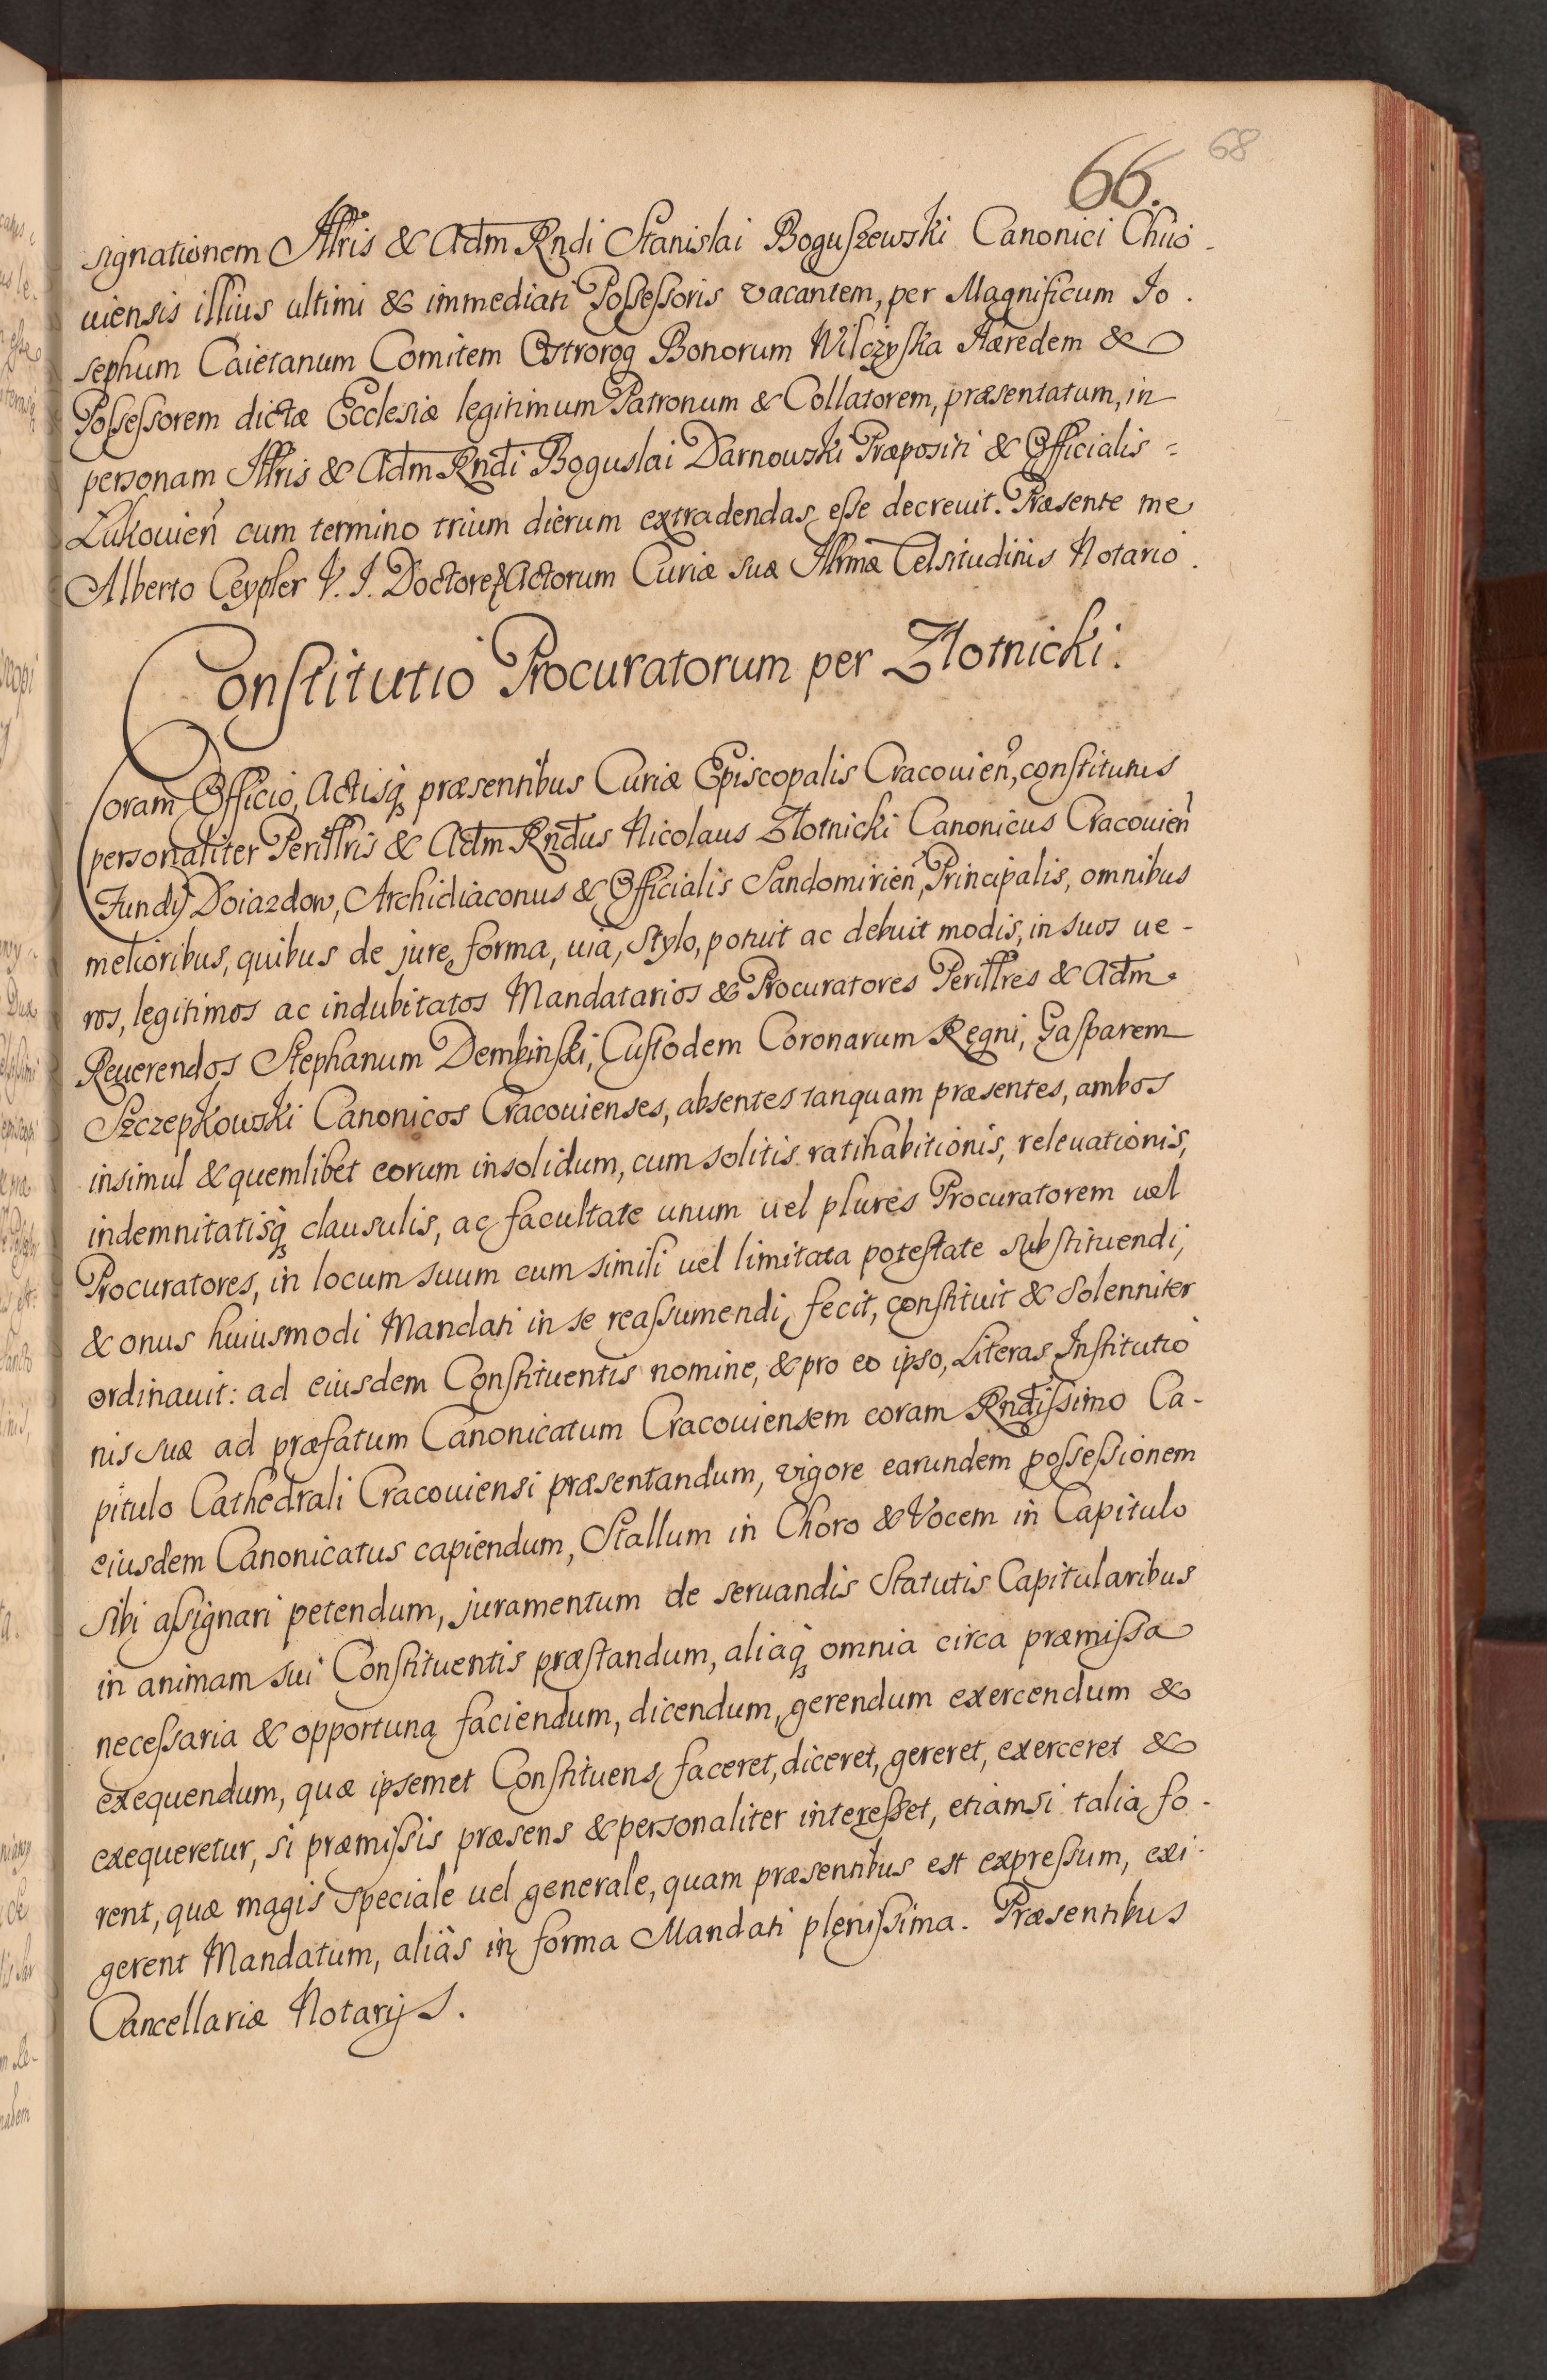 66.
68
signationem Illris & Adm Rndi Stanislai Boguszewski Canonici Chuo-
uiensis illius ultimi & immediati Possessoris vacantem, per Magnificum Jo.
sephum Caietanum Comitem Ostrorog Bonorum Wilczyska Hæredem &
Possessorem dictæ Ecclesiæ legitimum Patronum & Collatorem, præsentatum, in
personam Illris & Adm Rndi Boguslai Darnowski Præpositi & Officialis =
Lukouien cum termino trium dierum extradendas esse decreuit. Præsente me
Alberto Ceypler V. J. Doctore & Actorum Curiæ suæ Illrmæ Celsitudinis Notario.
Constitutio Procuratorum per Zlotnicki.
Coram Officio, Actisq præsentibus Curiæ Episcopalis Cracouien, constitutus
personaliter Perillris & Adm Rndus Nicolaus Zlotnicki Canonicus Cracouien
Fundi Doiazdow, Archidiaconus & Officialis Sandomirien, Principalis, omnibus
melioribus, quibus de jure, forma, uia, stylo, potuit ac debuit modis, in suos ue-
ros, legitimos ac indubitatos Mandatarios & Procuratores Perillres & Adm
Reuerendos Stephanum Dembinski, Custodem Coronarum Regni, Gasparem
Szczepkowski Canonicos Cracouienses, absentes tanquam præsentes, ambos
insimul & quemlibet eorum insolidum, cum solitis ratihabitionis, releuationis,
indemnitatisq clausulis, ac facultate unum uel plures Procuratorem uel
Procuratores, in locum suum cum simili uel limitata potestate substituendi,
& onus huiusmodi Mandati in se reassumendi, fecit, constituit & Solenniter
ordinauit: ad eiusdem Constituentis nomine, & pro eo ipso, Literas Institutio
nis suæ ad præfatum Canonicatum Cracouiensem coram Rndissimo Ca-
pitulo Cathedrali Cracouiensi præsentandum, vigore earundem possessionem
eiusdem Canonicatus capiendum, Stallum in Choro & Vocem in Capitulo
sibi assignari petendum, juramentum de seruandis Statutis Capitularibus
in animam sui Constituentis præstandum, aliaq omnia circa præmissa
necessaria & opportuna faciendum, dicendum, gerendum exercendum &
exequendum, quæ ipsemet Constituens faceret, diceret, gereret, exerceret &
exequeretur, si præmissis præsens & personaliter interesset, etiamsi talia fo-
rent, quæ magis speciale uel generale, quam præsentibus est expressum, exi-
gerent Mandatum, aliàs in forma Mandati plenissima. Præsentibus
Cancellariæ Notarijs.